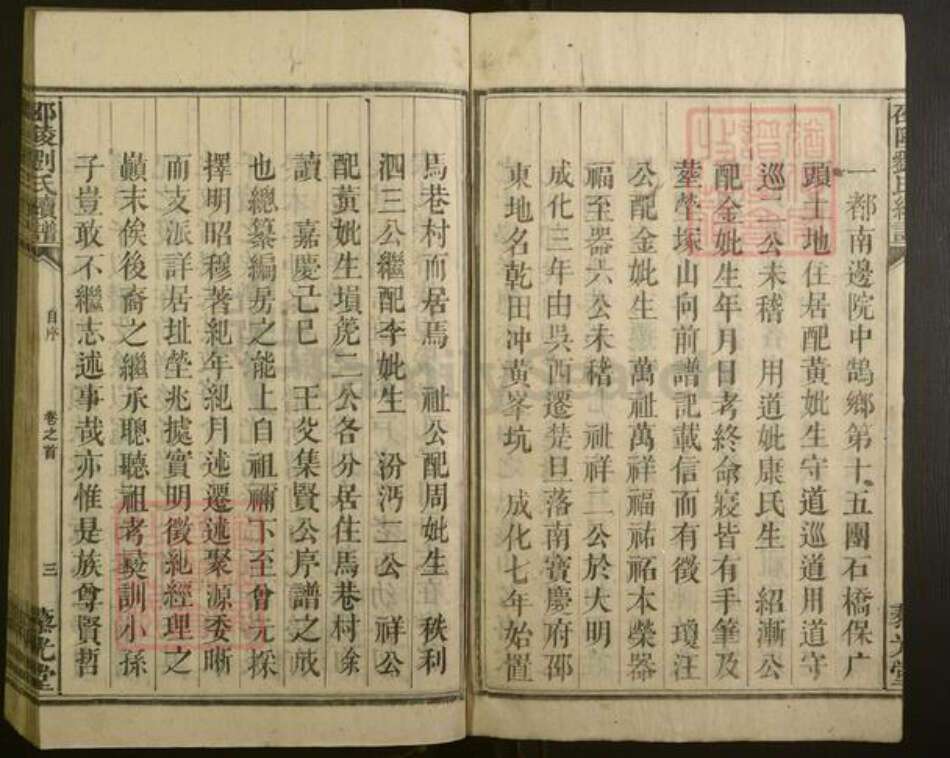 一都南邊院中鵠鄉第十五團石橋保广
頭土地住居配黃妣生守道巡道用道守
巡二公未稽 用道妣康氏生 紹漸公
配金妣生年月日考終命寢皆有手筆及
塟塋塚山向前譜記載信而有徵 瓊汪
公配金妣生 萬祉萬祥福祐祏本榮器
福至器六公未稽 祉祥二公於大明
成化三年由吳西遷楚旦落南寶慶府邵
東地名乾田冲黃峯坑 成化七年始置
馬巷村而居焉 祉公配周妣生 秩利
泗三公繼配李妣生 汾沔二公 祥公
配黃妣生塤箎二公各分居住馬巷村余
讀 嘉慶己巳 王父集賢公序譜之
也總纂編房之能上自祖禰下至會元採
擇明昭穆著紀年紀月述遷述聚源委晰
而支派詳居址塋兆據實明徵紀經理之
巔末俟後裔之繼承聰聽祖考彛訓小孫
子豈敢不繼志述事哉亦惟是族尊賢哲
邵陵劉氏續譜
自序
卷之首
三
藜光堂